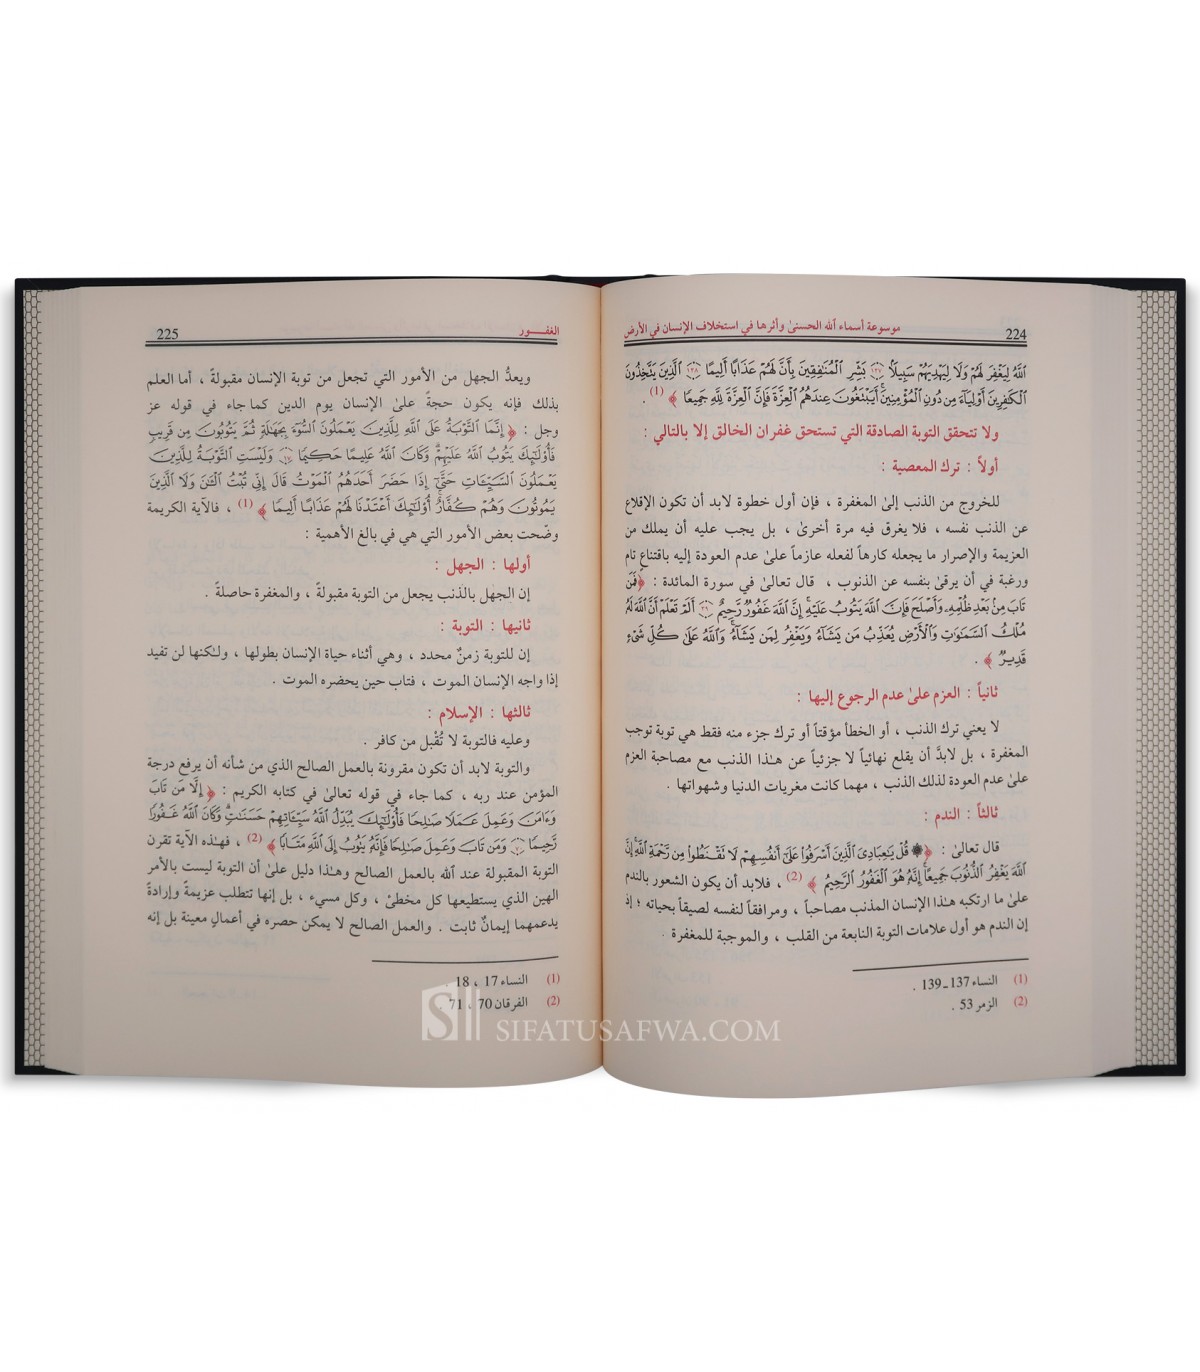 224 موسوعة أسماء الله الحسنىٰ وأثرها في استخلاف الإنسان في الأرض
ٱللَّهُ لِيَغْفِرَ لَهُمْ وَلَا لِيَهْدِيَهُمْ سَبِيلًا ﴿١٣٧﴾ بَشِّرِ ٱلْمُنَٰفِقِينَ بِأَنَّ لَهُمْ عَذَابًا أَلِيمًا ﴿١٣٨﴾ ٱلَّذِينَ يَتَّخِذُونَ
ٱلْكَٰفِرِينَ أَوْلِيَآءَ مِن دُونِ ٱلْمُؤْمِنِينَ أَيَبْتَغُونَ عِندَهُمُ ٱلْعِزَّةَ فَإِنَّ ٱلْعِزَّةَ لِلَّهِ جَمِيعًا ﴾ (1) .
ولا تتحقق التوبة الصادقة التي تستحق غفران الخالق إلا بالتالي :
أولاً : ترك المعصية :
للخروج من الذنب إلىٰ المغفرة ، فإن أول خطوة لابد أن تكون الإقلاع
عن الذنب نفسه ، فلا يغرق فيه مرة أخرىٰ ، بل يجب عليه أن يملك من
العزيمة والإصرار ما يجعله كارهاً لفعله عازماً علىٰ عدم العودة إليه باقتناع تام
ورغبة في أن يرقىٰ بنفسه عن الذنوب ، قال تعالىٰ في سورة المائدة : ﴿ فَمَن
تَابَ مِنۢ بَعْدِ ظُلْمِهِۦ وَأَصْلَحَ فَإِنَّ ٱللَّهَ يَتُوبُ عَلَيْهِ إِنَّ ٱللَّهَ غَفُورٌ رَّحِيمٌ ﴿٣٩﴾ أَلَمْ تَعْلَمْ أَنَّ ٱللَّهَ لَهُۥ
مُلْكُ ٱلسَّمَٰوَٰتِ وَٱلْأَرْضِ يُعَذِّبُ مَن يَشَآءُ وَيَغْفِرُ لِمَن يَشَآءُ وَٱللَّهُ عَلَىٰ كُلِّ شَىْءٍ
قَدِيرٌ ﴾ .
ثانياً : العزم علىٰ عدم الرجوع إليها :
لا يعني ترك الذنب ، أو الخطأ مؤقتاً أو ترك جزء منه فقط هي توبة توجب
المغفرة ، بل لابدَّ أن يقلع نهائياً لا جزئياً عن هـٰذا الذنب مع مصاحبة العزم
علىٰ عدم العودة لذلك الذنب ، مهما كانت مغريات الدنيا وشهواتها .
ثالثاً : الندم :
قال تعالىٰ : ﴿ ۞ قُلْ يَٰعِبَادِىَ ٱلَّذِينَ أَسْرَفُوا۟ عَلَىٰٓ أَنفُسِهِمْ لَا تَقْنَطُوا۟ مِن رَّحْمَةِ ٱللَّهِ إِنَّ
ٱللَّهَ يَغْفِرُ ٱلذُّنُوبَ جَمِيعًا إِنَّهُۥ هُوَ ٱلْغَفُورُ ٱلرَّحِيمُ ﴾ (2) ، فلابد أن يكون الشعور بالندم
علىٰ ما ارتكبه هـٰذا الإنسان المذنب مصاحباً ، ومرافقاً لنفسه لصيقاً بحياته ؛ إذ
إن الندم هو أول علامات التوبة النابعة من القلب ، والموجبة للمغفرة .
(1) النساء 137 ـ 139 .
(2) الزمر 53 .
الغفــور 225
ويعدُّ الجهل من الأمور التي تجعل من توبة الإنسان مقبولةً ، أما العلم
بذلك فإنه يكون حجةً علىٰ الإنسان يوم الدين كما جاء في قوله عز
وجل : ﴿ إِنَّمَا ٱلتَّوْبَةُ عَلَى ٱللَّهِ لِلَّذِينَ يَعْمَلُونَ ٱلسُّوٓءَ بِجَهَٰلَةٍ ثُمَّ يَتُوبُونَ مِن قَرِيبٍ
فَأُو۟لَٰٓئِكَ يَتُوبُ ٱللَّهُ عَلَيْهِمْ وَكَانَ ٱللَّهُ عَلِيمًا حَكِيمًا ﴿١٧﴾ وَلَيْسَتِ ٱلتَّوْبَةُ لِلَّذِينَ
يَعْمَلُونَ ٱلسَّيِّـَٔاتِ حَتَّىٰٓ إِذَا حَضَرَ أَحَدَهُمُ ٱلْمَوْتُ قَالَ إِنِّى تُبْتُ ٱلْـَٰٔنَ وَلَا ٱلَّذِينَ
يَمُوتُونَ وَهُمْ كُفَّارٌ أُو۟لَٰٓئِكَ أَعْتَدْنَا لَهُمْ عَذَابًا أَلِيمًا ﴾ (1) ، فالآية الكريمة
وضّحت بعض الأمور التي هي في بالغ الأهمية :
أولها : الجهل :
إن الجهل بالذنب يجعل من التوبة مقبولةً ، والمغفرة حاصلةً .
ثانيها : التوبة :
إن للتوبة زمنٌ محدد ، وهي أثناء حياة الإنسان بطولها ، ولـٰكنها لن تفيد
إذا واجه الإنسان الموت ، فتاب حين يحضره الموت .
ثالثها : الإسلام :
وعليه فالتوبة لا تُقْبل من كافر .
والتوبة لابد أن تكون مقرونة بالعمل الصالح الذي من شأنه أن يرفع درجة
المؤمن عند ربه ، كما جاء في قوله تعالىٰ في كتابه الكريم : ﴿ إِلَّا مَن تَابَ
وَءَامَنَ وَعَمِلَ عَمَلًا صَٰلِحًا فَأُو۟لَٰٓئِكَ يُبَدِّلُ ٱللَّهُ سَيِّـَٔاتِهِمْ حَسَنَٰتٍ وَكَانَ ٱللَّهُ غَفُورًا
رَّحِيمًا ﴿٧٠﴾ وَمَن تَابَ وَعَمِلَ صَٰلِحًا فَإِنَّهُۥ يَتُوبُ إِلَى ٱللَّهِ مَتَابًا ﴾ (2) ، فهـٰذه الآية تقرن
التوبة المقبولة عند الله بالعمل الصالح وهـٰذا دليل علىٰ أن التوبة ليست بالأمر
الهين الذي يستطيعها كل مخطئ ، وكل مسيء ، بل إنها تتطلب عزيمةً وإرادةً
يدعمهما إيمانٌ ثابت . والعمل الصالح لا يمكن حصره في أعمالٍ معينة بل إنه
(1) النساء 17 ، 18
(2) الفرقان 70 ، 71
SIFATUSAFWA.COM